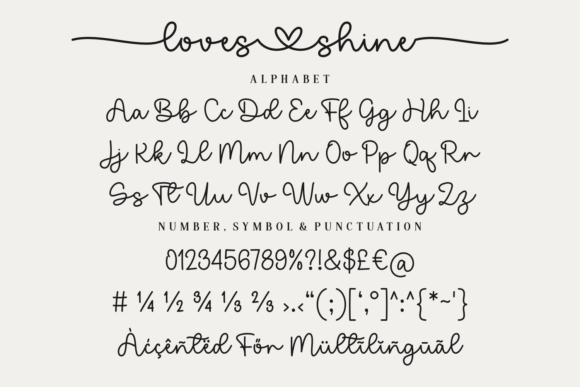 loves shine
ALPHABET
Aa Bb Cc Dd Ee Ff Gg Hh Ii
Jj Kk Ll Mm Nn Oo Pp Qq Rr
Ss Tt Uu Vv Ww Xx Yy Zz
NUMBER, SYMBOL & PUNCTUATION
0123456789%?!&$£€@
# ¼ ½ ¾ ⅓ ⅔ >.<“(;)[‘,°]^:^{*~'}
Àċçêñtëd Főr Mültĩlĩñgūāl